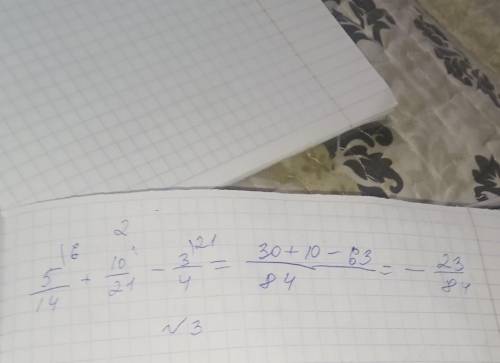 2
5/14 |6 + 10/21 ' - 3/4 |21 = (30 + 10 - 63)/84 = - 23/84
√3